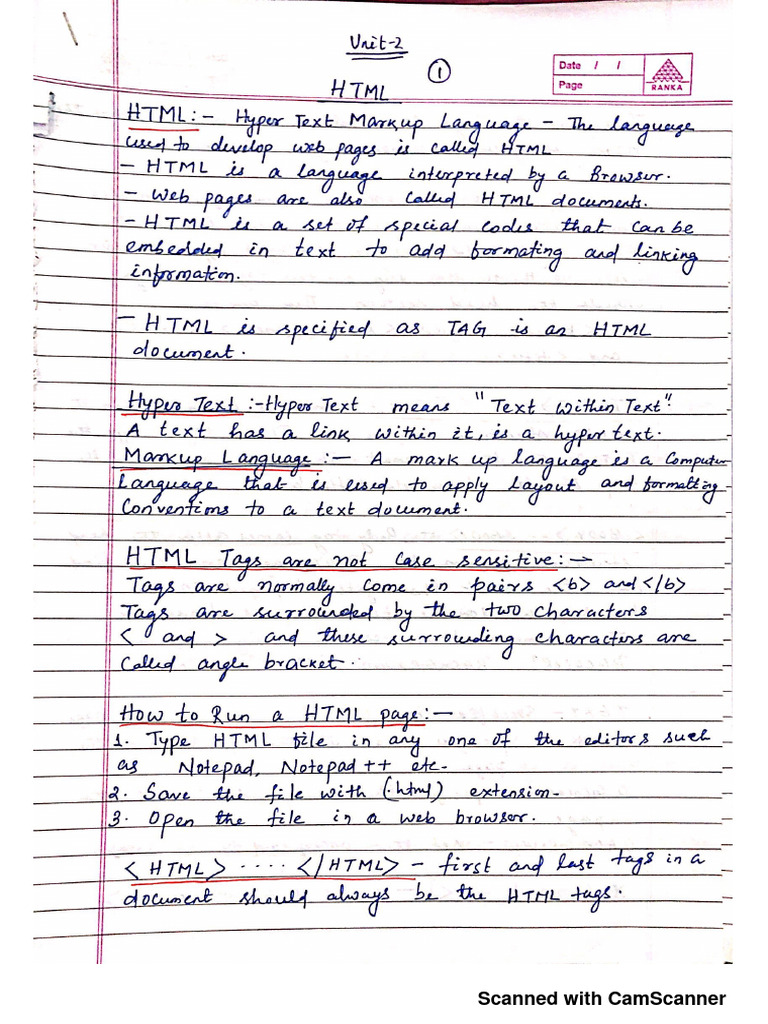 Unit-2
1
Date / /
Page
RANKA
HTML
HTML:- Hyper Text Markup Language - The language
used to develop web pages is called HTML
- HTML is a language interpreted by a Browser.
- Web pages are also called HTML documents.
- HTML is a set of special codes that can be
embedded in text to add formating and linking
information.
- HTML is specified as TAG is an HTML
document.
Hyper Text :- Hyper Text means "Text within Text".
A text has a link within it, is a hyper text.
Markup Language :- A mark up language is a Computer
Language that is used to apply Layout and formatting
Conventions to a text document.
HTML Tags are not case sensitive:-
Tags are normally come in pairs <b> and </b>
Tags are surrounded by the two characters
< and > and these surrounding characters are
Called angle bracket.
How to Run a HTML page:-
1. Type HTML file in any one of the editors such
as Notepad, Notepad++ etc.
2. Save the file with (.html) extension.
3. Open the file in a web browser.
<HTML> ..... </HTML> - first and last tags in a
document should always be the HTML tags.
Scanned with CamScanner